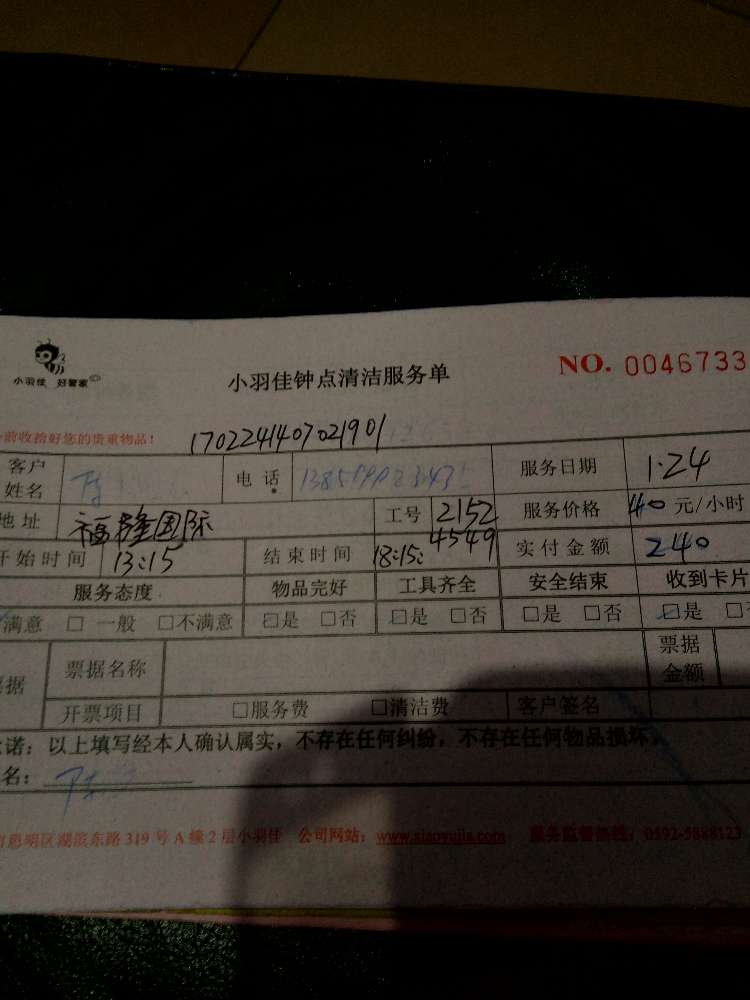 小羽佳 好管家
小羽佳钟点清洁服务单
NO. 0046733
前收拾好您的贵重物品!
1702241407021901
客户姓名 陈 电话 服务日期 1·24
地址 福隆国际 工号 2152 4549 服务价格 40元/小时
开始时间 13:15 结束时间 18:15: 实付金额 240
服务态度 物品完好 工具齐全 安全结束 收到卡片
满意 □ 一般 □不满意 ☑是 □否 ☑是 □否 □是 □否 ☑是 □
票据名称 票据金额
据 开票项目 □服务费 □清洁费 客户签名
诺:以上填写经本人确认属实,不存在任何纠纷,不存在任何物品损坏。
名: 陈
明区湖滨东路319号A幢2层小羽佳 公司网站:www.xiaoyujia.com 服务监督热线:0592-5888123